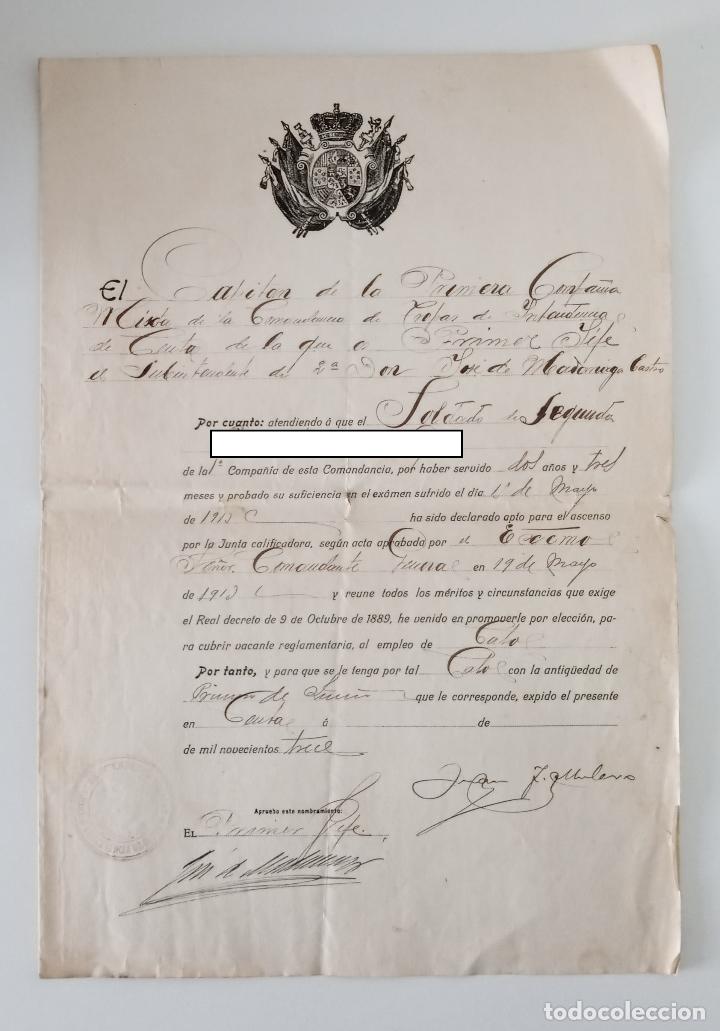 El Capitan de la Primera Compañia
Mixta de la Comandancia de Tropas de Intendencia
de Ceuta de la que es Primer Jefe
el Subintendente de 2ª Don José de Madariaga Castro
Por cuanto: atendiendo á que el Soldado de Segunda
de la 1ª Compañía de esta Comandancia, por haber servido dos años y tres
meses y probado su suficiencia en el exámen sufrido el día 1º de Mayo
de 1913 ha sido declarado apto para el ascenso
por la Junta calificadora, según acta aprobada por el Excmo
Señor Comandante General en 19 de Mayo
de 1913 y reune todos los méritos y circunstancias que exige
el Real decreto de 9 de Octubre de 1889, he venido en promoverle por elección, pa-
ra cubrir vacante reglamentaria, al empleo de Cabo
Por tanto, y para que se le tenga por tal Cabo con la antigüedad de
Primero de Junio que le corresponde, expido el presente
en Ceuta á de
de mil novecientos trece
Juan
Apruebo este nombramiento:
EL Primer Jefe,
José de Madariaga
todocoleccion